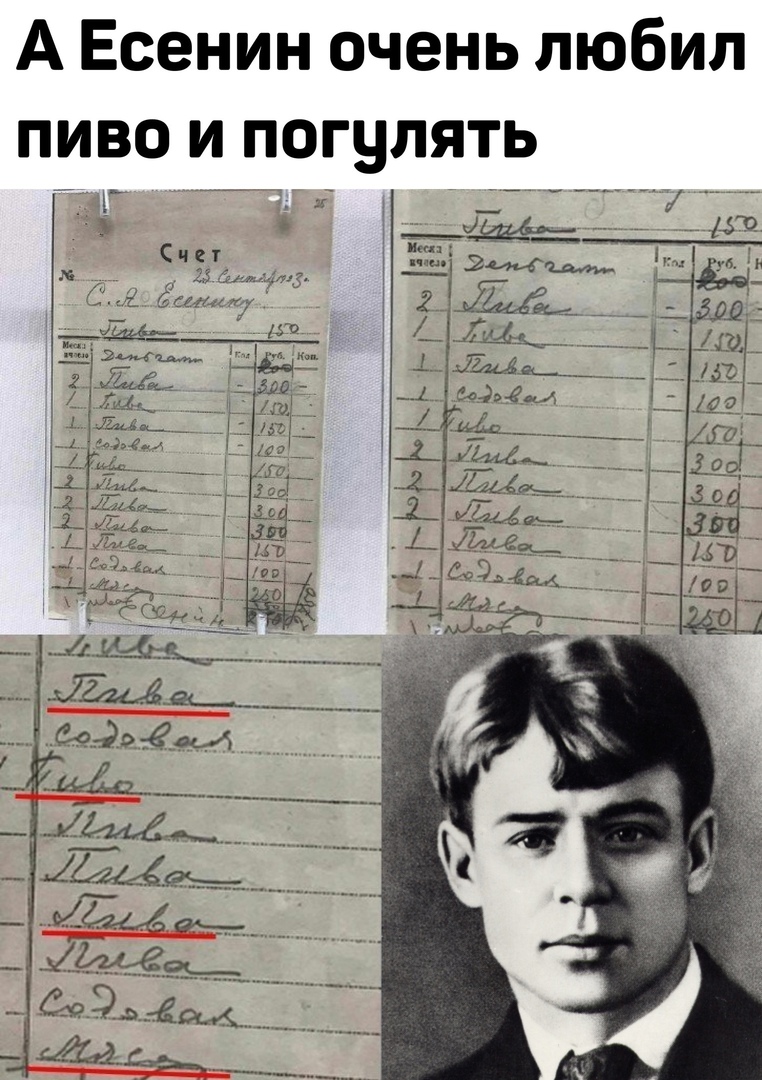 А Есенин очень любил
пиво и погулять
25
Счет
№ 23 Сентября 3
С. А Есенину
Пива 150
Месяц и число Руб. Коп.
Деньгами
2 Пива - 300 -
1 Пива - 150
1 Пива - 150
1 содовая - 100
1 Пиво 150
2 Пива 300
2 Пива 300
2 Пива 300
1 Пива 150
1 Содовая 100
1 Мясо 250
Есенин
Пива 150
Месяц и число Руб.
Деньгами
2 Пива - 300
1 Пива - 150
1 Пива - 150
1 содовая - 100
1 Пиво 150
2 Пива 300
2 Пива 300
2 Пива 300
1 Пива 150
1 Содовая 100
1 Мясо 250
Пива
Пива
содовая
Пиво
Пива
Пива
Пива
Пива
Содовая
Мясо